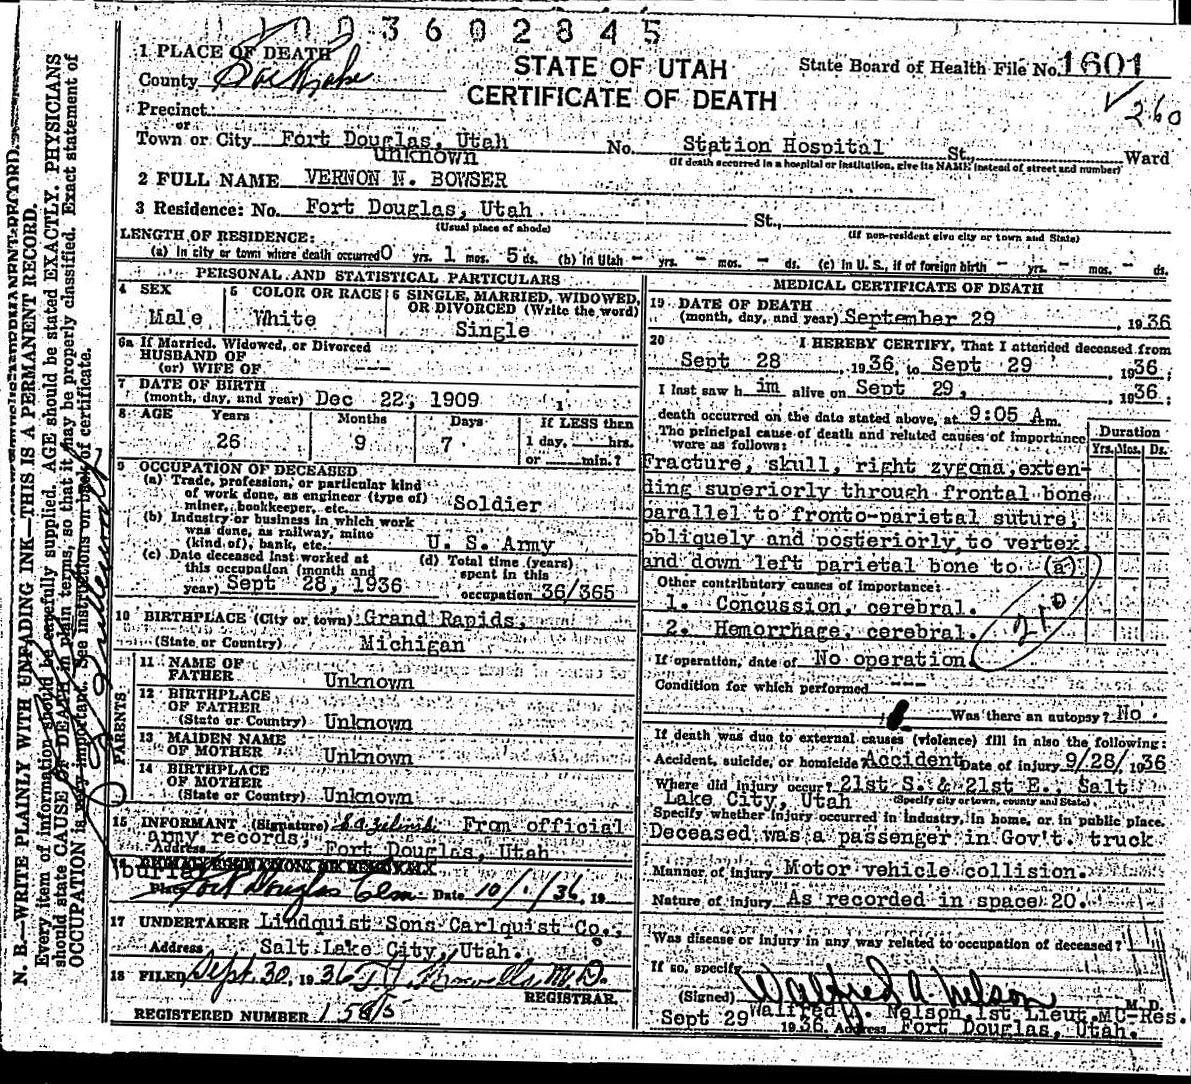 1 0 0 3 6 0 2 8 4 5
1 PLACE OF DEATH
County Salt Lake
STATE OF UTAH
CERTIFICATE OF DEATH
State Board of Health File No. 1601
260
Precinct
or
Town or City Fort Douglas, Utah No. Station Hospital St., Ward
unknown
(If death occurred in a hospital or institution, give its NAME instead of street and number)
2 FULL NAME VERNON N. BOWSER
3 Residence: No. Fort Douglas, Utah St.,
(Usual place of abode) (If non-resident give city or town and State)
LENGTH OF RESIDENCE:
(a) In city or town where death occurred 0 yrs. 1 mos. 5 ds. (b) In Utah - yrs. - mos. - ds. (c) In U. S., if of foreign birth - yrs. - mos. - ds.
PERSONAL AND STATISTICAL PARTICULARS
4 SEX
Male
5 COLOR OR RACE
White
6 SINGLE, MARRIED, WIDOWED, OR DIVORCED (Write the word)
Single
6a If Married, Widowed, or Divorced
HUSBAND OF
(or) WIFE OF ---
7 DATE OF BIRTH
(month, day, and year) Dec 22, 1909
8 AGE Years Months Days If LESS than
26 9 7 1 day, hrs.
or min.?
9 OCCUPATION OF DECEASED
(a) Trade, profession, or particular kind
of work done, as engineer (type of)
miner, bookkeeper, etc. Soldier
(b) Industry or business in which work
was done, as railway, mine
(kind of), bank, etc. U. S. Army
(c) Date deceased last worked at
this occupation (month and
year) Sept 28, 1936
(d) Total time (years)
spent in this
occupation 36/365
10 BIRTHPLACE (City or town) Grand Rapids,
(State or Country) Michigan
PARENTS
11 NAME OF
FATHER Unknown
12 BIRTHPLACE
OF FATHER
(State or Country) Unknown
13 MAIDEN NAME
OF MOTHER Unknown
14 BIRTHPLACE
OF MOTHER
(State or Country) Unknown
15 INFORMANT (Signature) From official
army records,
Address Fort Douglas, Utah
16 BURIAL, CREMATION OR REMOVAL
burial
Place Fort Douglas Cem. Date 10/1/36, 19
17 UNDERTAKER Lindquist Sons Carlquist Co.,
Address Salt Lake City, Utah.
18 FILED Sept. 30, 1936 M. D.
REGISTRAR
REGISTERED NUMBER 1585
MEDICAL CERTIFICATE OF DEATH
19 DATE OF DEATH
(month, day, and year) September 29, 1936
20 I HEREBY CERTIFY, That I attended deceased from
Sept 28, 1936, to Sept 29, 1936;
I last saw him alive on Sept 29, 1936;
death occurred on the date stated above, at 9:05 A m.
The principal cause of death and related causes of importance
were as follows:
Duration
Yrs. Mos. Ds.
Fracture, skull, right zygoma, exten-
ding superiorly through frontal bone
parallel to fronto-parietal suture,
obliquely and posteriorly, to vertex
and down left parietal bone to (a)
Other contributory causes of importance:
1. Concussion, cerebral.
2. Hemorrhage, cerebral.
210
If operation, date of No operation.
Condition for which performed ---
Was there an autopsy? No.
If death was due to external causes (violence) fill in also the following:
Accident, suicide, or homicide? Accident Date of injury 9/28/1936
Where did injury occur? 21st S. & 21st E., Salt
Lake City, Utah (Specify city or town, county and State)
Specify whether injury occurred in industry, in home, or in public place.
Deceased was a passenger in Gov't. truck
Manner of injury Motor vehicle collision.
Nature of injury As recorded in space 20.
Was disease or injury in any way related to occupation of deceased?
If so, specify
(Signed) Walfred A. Nelson M. D.
Walfred A. Nelson, 1st Lieut. MC-Res.
Sept 29 1936 Address Fort Douglas, Utah.
N. B.—WRITE PLAINLY WITH UNFADING INK—THIS IS A PERMANENT RECORD.
Every item of information should be carefully supplied. AGE should be stated EXACTLY. PHYSICIANS
should state CAUSE OF DEATH in plain terms, so that it may be properly classified. Exact statement of
OCCUPATION is very important. See instructions on back of certificate.